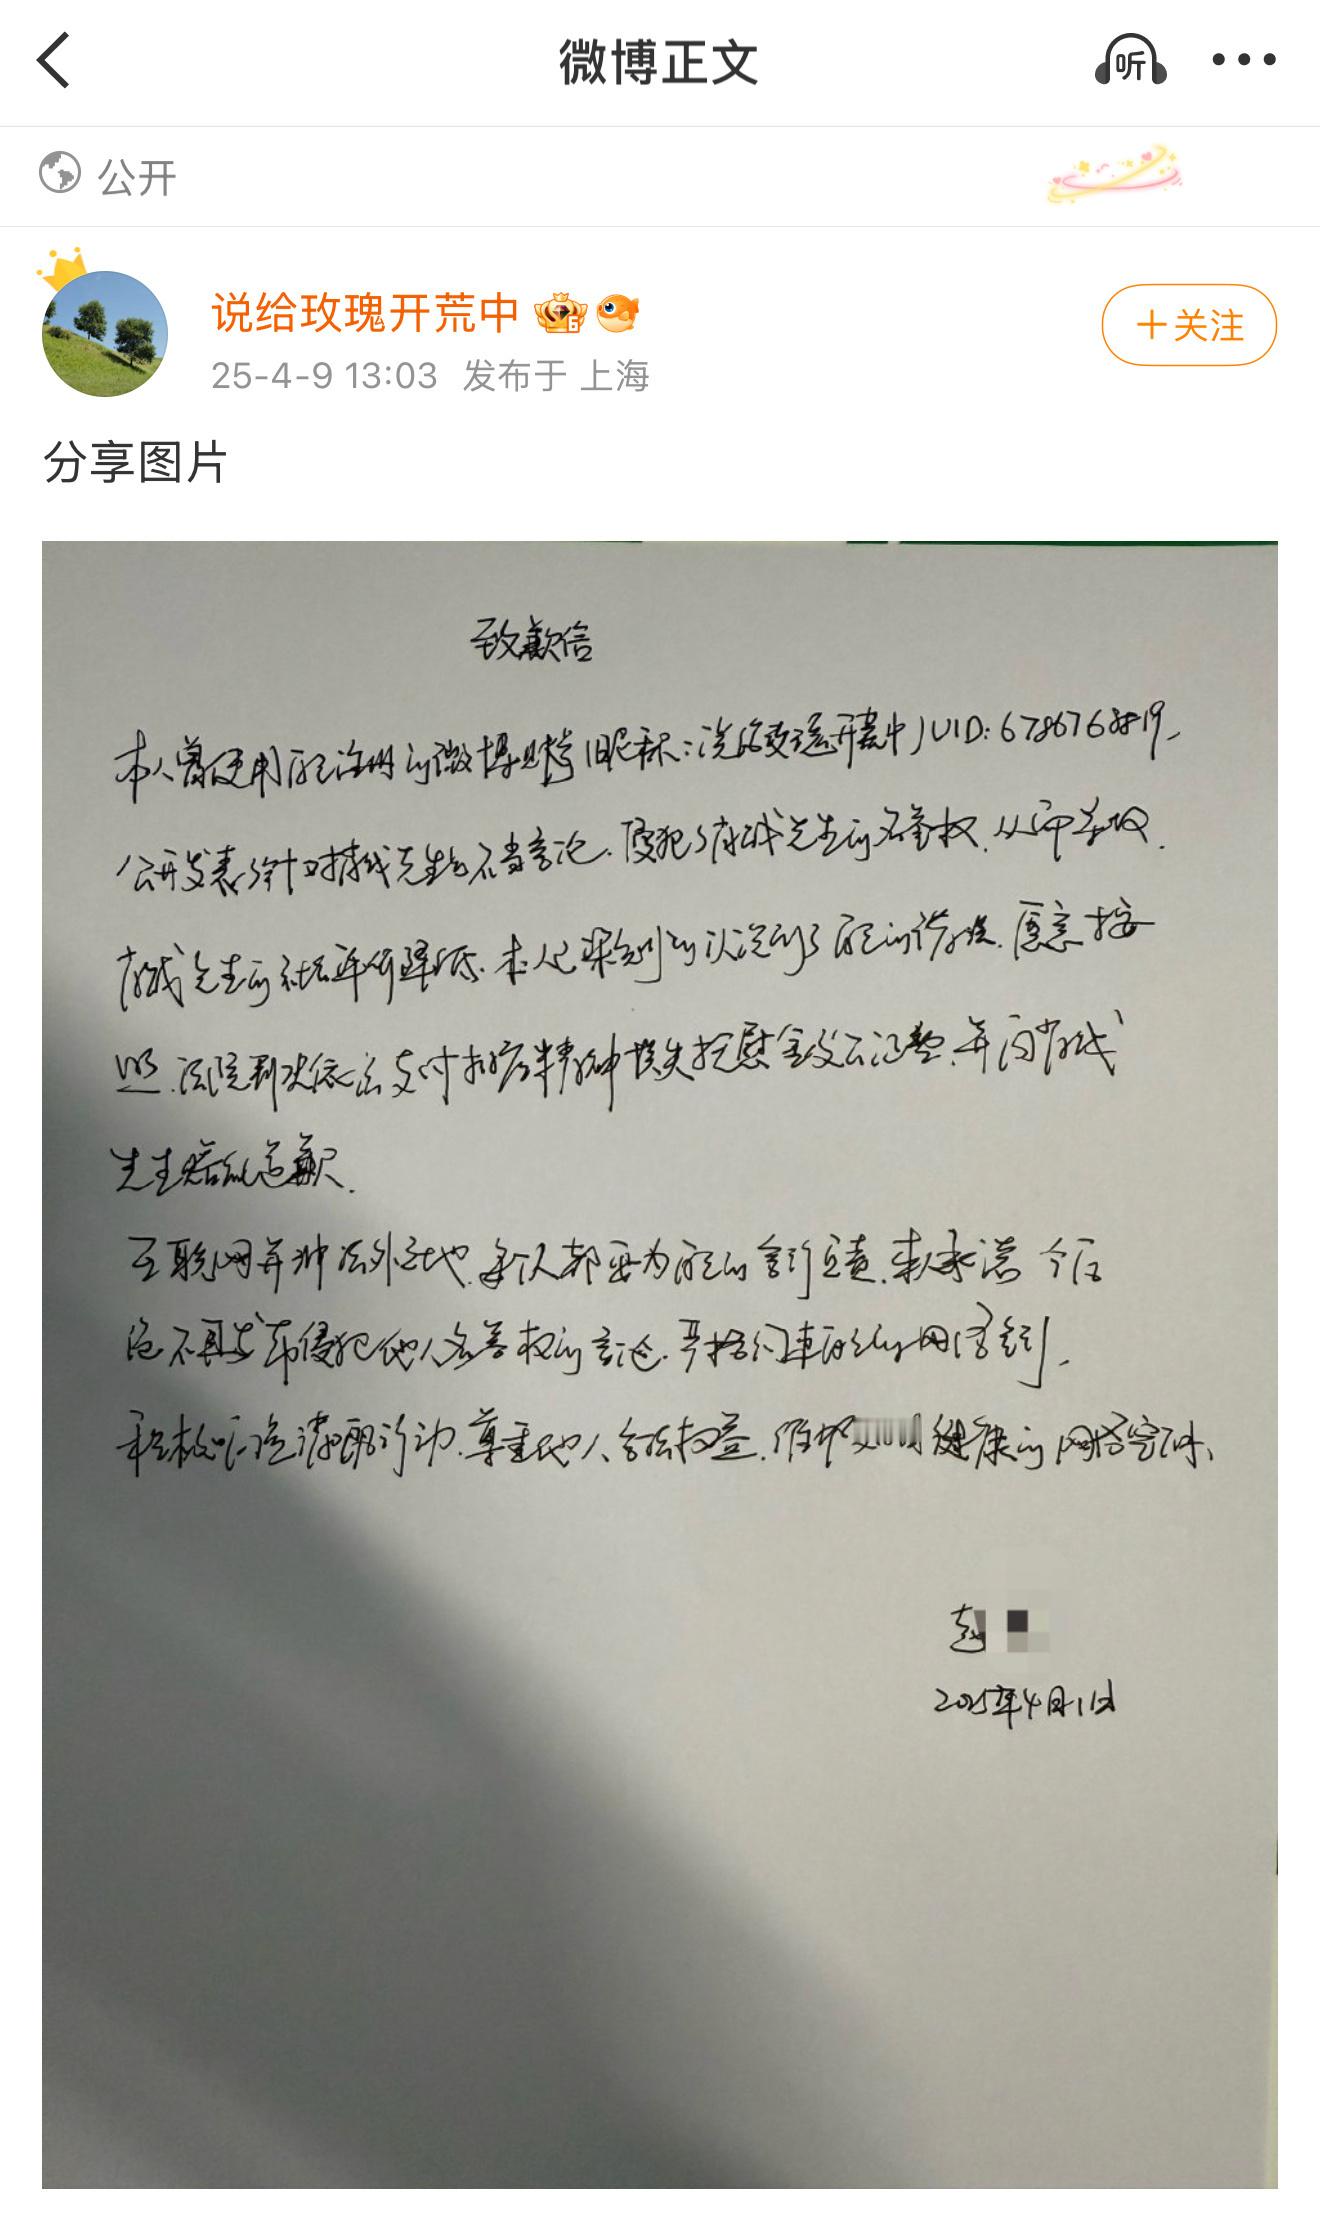 微博正文
听
公开
说给玫瑰开荒中
6
25-4-9 13:03 发布于 上海
+关注
分享图片
致歉信
本人曾使用自己注册的微博账号(昵称:说给玫瑰开荒中)UID:6786768819,
公开发表了针对 先生的不当言论,侵犯了 先生的名誉权,从而导致
先生的社会评价降低。本人已深刻的认识到了自己的错误,愿意按
照法院判决依法支付 精神损失抚慰金及公证费,并向
先生赔礼道歉。
互联网并非法外之地,每个人都要为自己的言行负责,本人承诺 今后
绝不再发布侵犯他人名誉权的言论,严格约束自己的网络言行,
积极响应清朗行动,尊重他人合法权益,维护 健康的网络空间。
赵
2025年4月1日